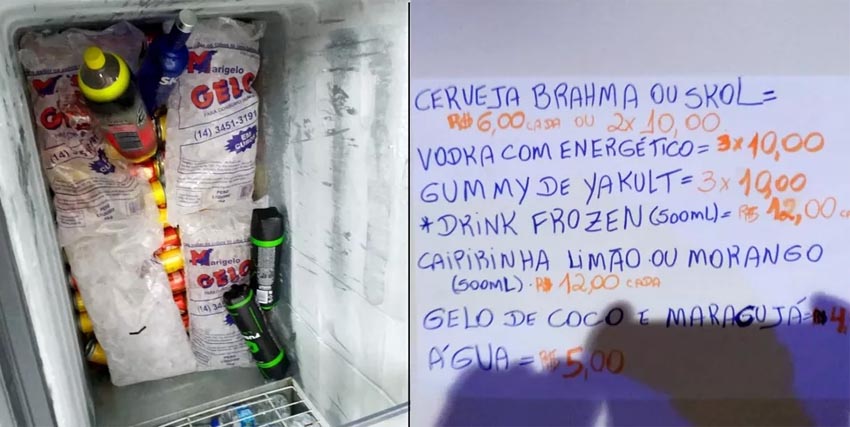 Marigelo
GELO
PARA
(14) 3451-3191
EM CUBOS
Marigelo
GELO
(14) 345
CERVEJA BRAHMA OU SKOL =
R$ 6,00 CADA OU 2x10,00
VODKA COM ENERGÉTICO = 3x10,00
GUMMY DE YAKULT = 3x10,00
*DRINK FROZEN (500ML) = R$ 12,00 CA
CAIPIRINHA LIMÃO OU MORANGO
(500ML) · R$ 12,00 CADA
GELO DE COCO E MARAGUJÁ = R$ 4,
ÁGUA = R$ 5,00